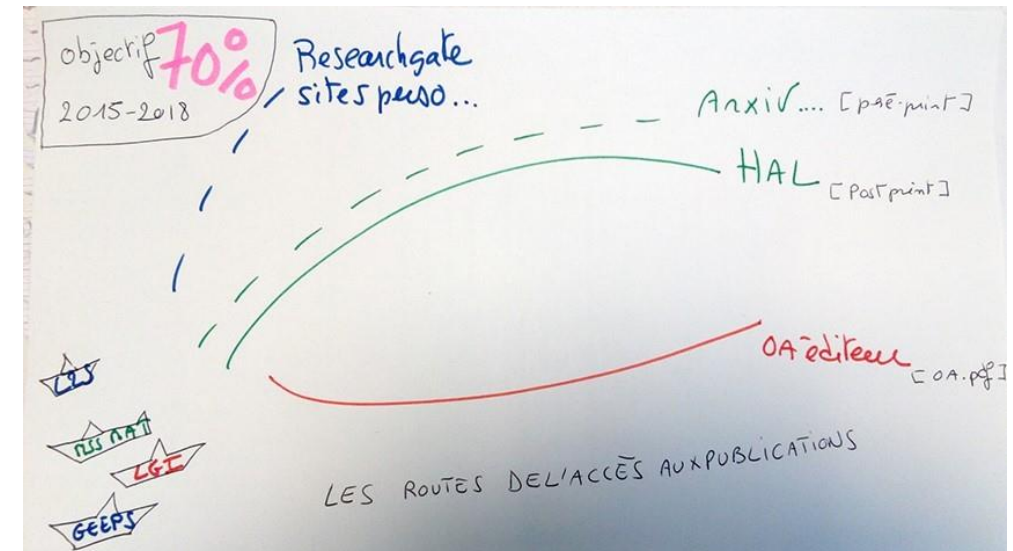 objectif 70%
2015-2018
Researchgate
sites perso...
Arxiv.... [pré-print]
HAL [Post print]
OA éditeur [OA.pdf]
L2S
MSS MAT
LGI
GEEPS
LES ROUTES DE L'ACCÈS AUX PUBLICATIONS